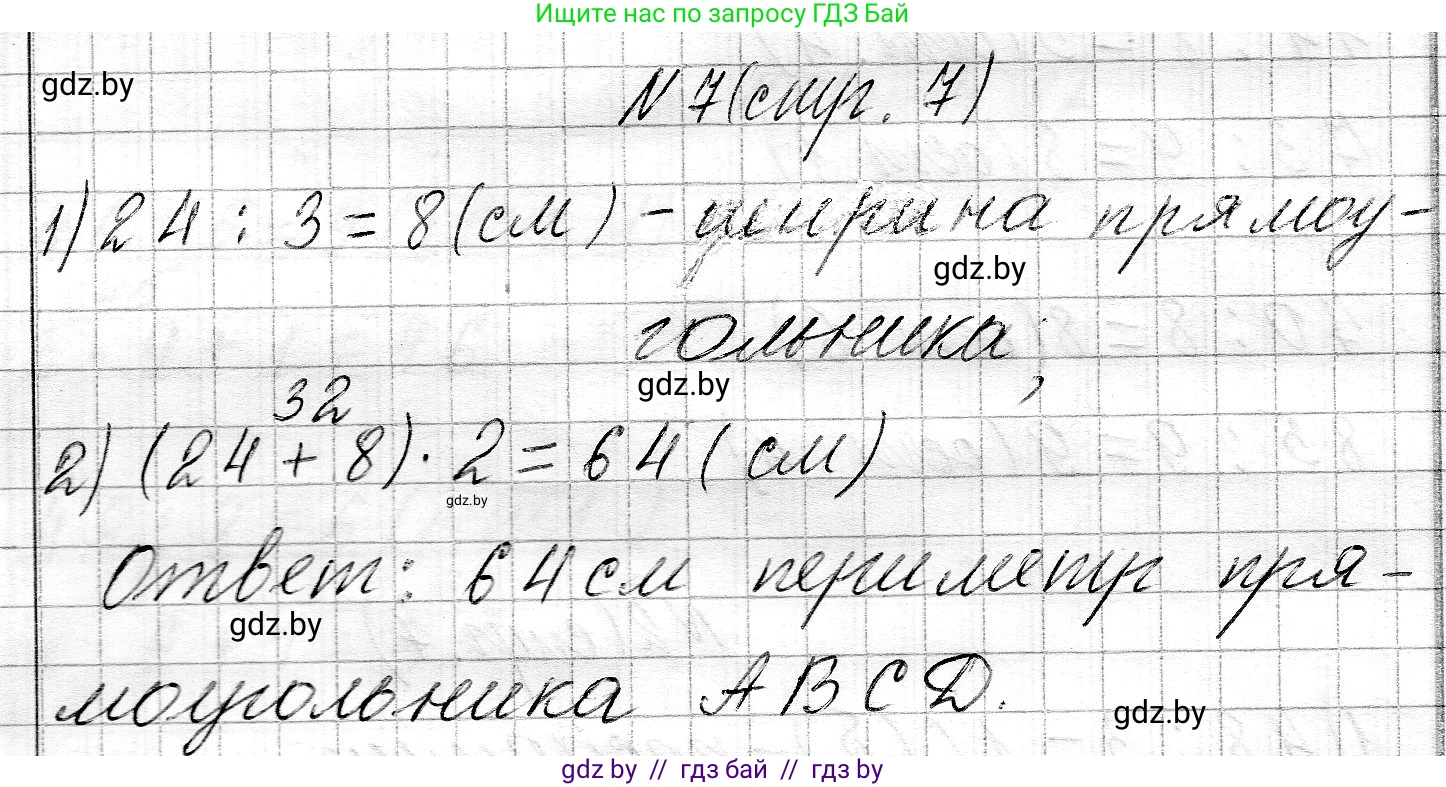 Ищите нас по запросу ГДЗ Бай
gdz.by
N 7 (стр. 7)
1) 24 : 3 = 8 (см) - ширина прямоу-
gdz.by
гольника;
gdz.by
32
2) (24 + 8) · 2 = 64 (см)
gdz.by
Ответ: 64 см периметр пря-
gdz.by
моугольника ABCD.
gdz.by
gdz by // гдз бай // гдз by